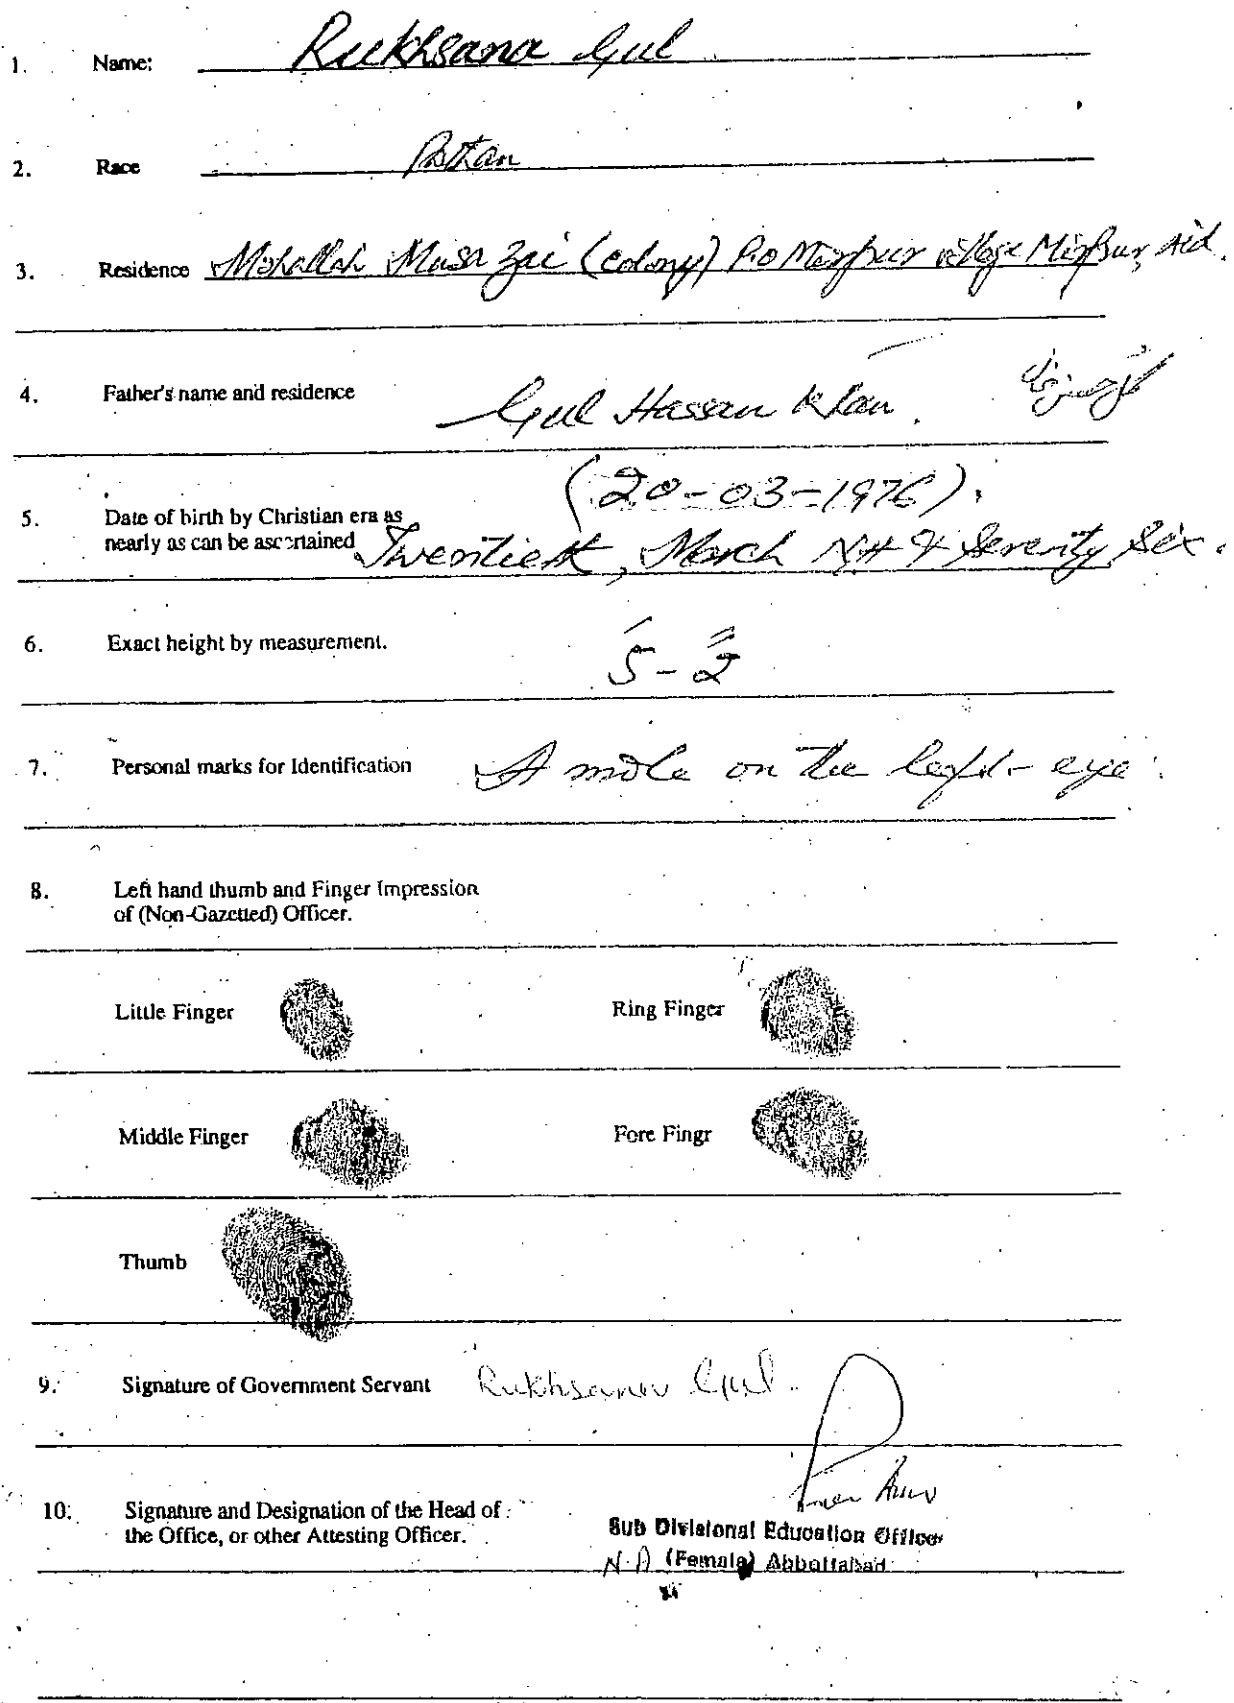 1. Name: Rukhsana Gul
2. Race Pathan
3. Residence Mohallah Musa Zai (colony) P.o Mirpur village Mirpur, Atd.
4. Father's name and residence Gul Hassan Khan.
(20-03-1976).
5. Date of birth by Christian era as
nearly as can be ascertained Twentieth, March N.H & Seventy Six.
6. Exact height by measurement. 5′-2″
7. Personal marks for Identification A mole on the left-eye.
8. Left hand thumb and Finger Impression
of (Non-Gazetted) Officer.
Little Finger Ring Finger
Middle Finger Fore Fingr
Thumb
9. Signature of Government Servant Rukhsana Gul.
10. Signature and Designation of the Head of
the Office, or other Attesting Officer.
Sub Divisional Education Officer
N.A (Female) Abbottabad